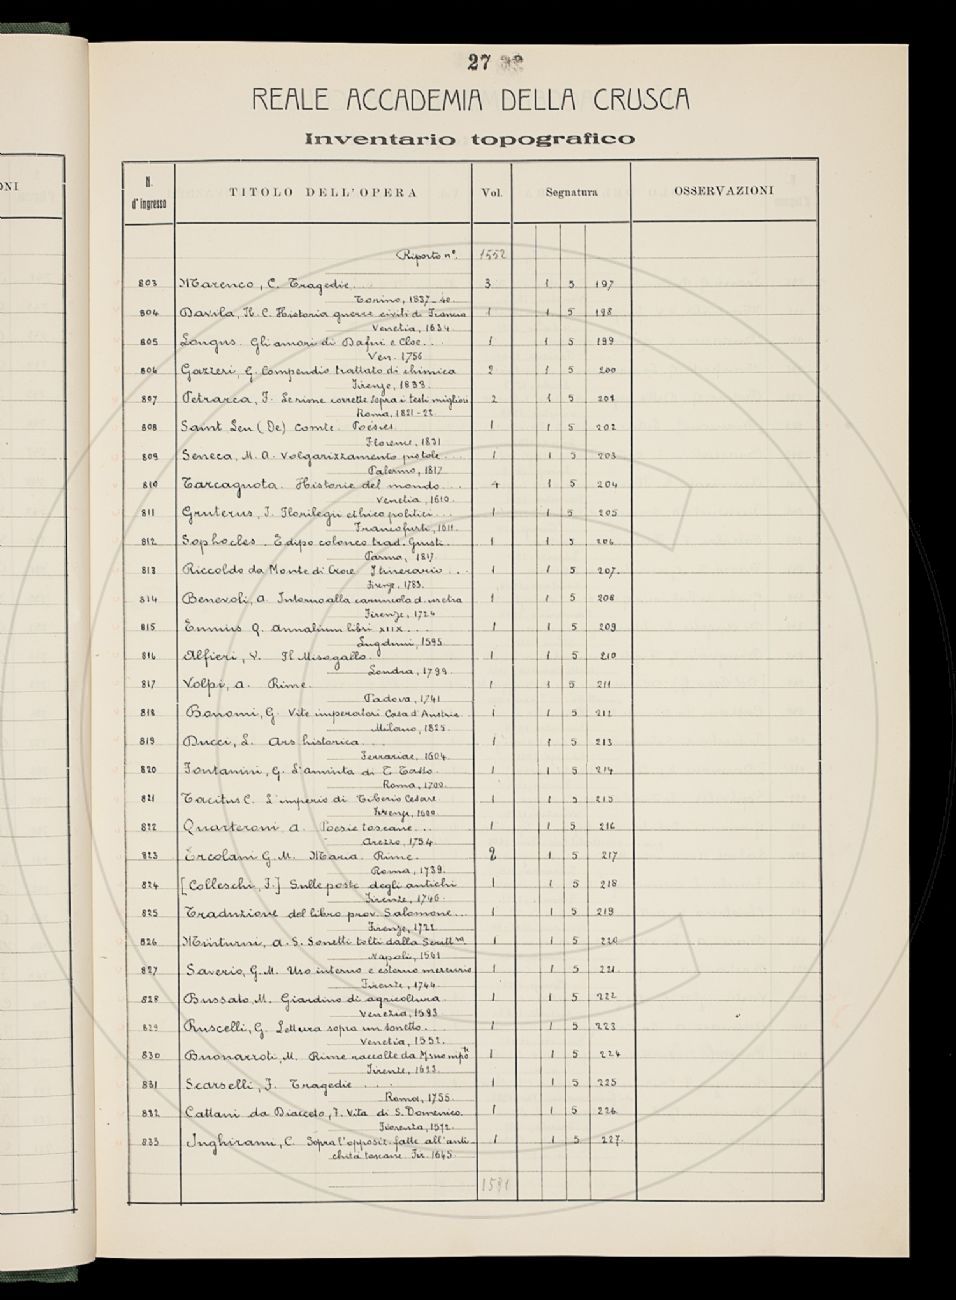 27
REALE ACCADEMIA DELLA CRUSCA
Inventario topografico
ONI
N. d'ingresso TITOLO DELL'OPERA Vol. Segnatura OSSERVAZIONI
Riporto nº. 1552
803 Marenco, C. Tragedie... 3 1 5 197
Torino, 1837-40.
804 Davila, H. C. Historia guerre civili di Francia 1 1 5 198
Venetia, 1634
805 Longus. Gli amori di Dafni e Cloe... 1 1 5 199
Ven. 1756
806 Gazzeri, G. Compendio trattato di chimica 2 1 5 200
Firenze, 1833.
807 Petrarca, F. Le rime corrette sopra i testi migliori 2 1 5 201
Roma, 1821-22.
808 Saint Leu (De) comte. Poésies. 1 1 5 202
Florence, 1831
809 Seneca, M. A. Volgarizzamento pistole.... 1 1 5 203
Palermo, 1817
810 Tarcagnota. Historie del mondo... 4 1 5 204
Venetia, 1610.
811 Gruterus, J. Florilegii ethico politici... 1 1 5 205
Francofurti, 1611.
812 Sophocles. Edipo coloneo trad. Giusti. 1 1 5 206
Parma, 1817
813 Riccoldo da Monte di Croce Itinerario... 1 1 5 207.
Firenze, 1793.
814 Benevoli, A. Intorno alla caruncola d. uretra 1 1 5 208
Firenze, 1724
815 Ennius Q. Annalium libri XIIX.... 1 1 5 209
Lugduni, 1595
816 Alfieri, V. Il Misogallo. 1 1 5 210
Londra, 1799.
817 Volpi, A. Rime. 1 1 5 211
Padova, 1741
818 Bonomi, G. Vite imperatori Casa d'Austria. 1 1 5 212
Milano, 1825.
819 Ducci, L. Ars historica... 1 1 5 213
Ferrariae, 1604.
820 Fontanini, G. L'aminta di T. Tasso. 1 1 5 214
Roma, 1700.
821 Tacitus C. L'imperio di Tiberio Cesare 1 1 5 215
Firenze, 1600
822 Quarteroni, A. Poesie toscane... 1 1 5 216
Arezzo, 1754.
823 Ercolani G. M. Maria. Rime. 2 1 5 217
Roma, 1739.
824 [Colleschi, F.] Sulle poste degli antichi 1 1 5 218
Firenze, 1746.
825 Traduzione del libro prov. Salomone... 1 1 5 219
Firenze, 1722
826 Minturni, A. S. Sonetti tolti dalla Scritt.ra 1 1 5 220
Napoli, 1561
827 Saverio, G. M. Uso interno e esterno mercurio 1 1 5 221
Firenze, 1744
828 Bussato, M. Giardino di agricoltura. 1 1 5 222
Venezia, 1593
829 Ruscelli, G. Lettura sopra un sonetto.... 1 1 5 223
Venetia, 1552.
830 Buonarroti, M. Rime raccolte da M. suo nip.te 1 1 5 224
Firenze, 1623.
831 Scarselli, F. Tragedie.... 1 1 5 225
Roma, 1755.
832 Cattani da Diacceto, F. Vita di S. Domenico. 1 1 5 226.
Fiorenza, 1572.
833 Inghirami, C. Sopra l'opposiz. fatte all'anti- 1 1 5 227.
chità toscane Fir. 1645.
1591